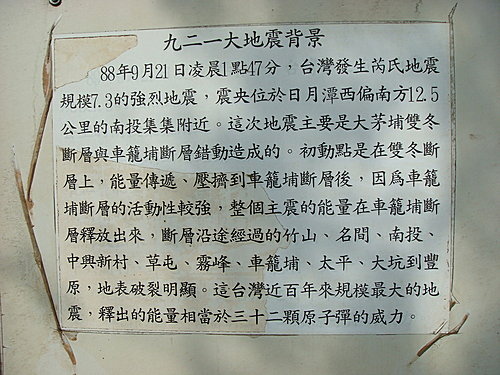 九二一大地震背景
88年9月21日凌晨1點47分，台灣發生芮氏地震
規模7.3的強烈地震，震央位於日月潭西偏南方12.5
公里的南投集集附近。這次地震主要是大茅埔雙冬
斷層與車籠埔斷層錯動造成的。初動點是在雙冬斷
層上，能量傳遞、壓擠到車籠埔斷層後，因為車籠
埔斷層的活動性較強，整個主震的能量在車籠埔斷
層釋放出來，斷層沿途經過的竹山、名間、南投、
中興新村、草屯、霧峰、車籠埔、太平、大坑到豐
原，地表破裂明顯。這台灣近百年來規模最大的地
震，釋出的能量相當於三十二顆原子彈的威力。